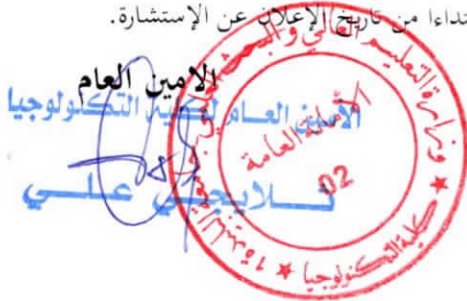 ابتداءا من تاريخ الإعلان عن الإستشارة.
الامين العام
الأمين العام لكلية التكنولوجيا
علي
وزارة التعليم العالي و البحث العلمي
الأمانة العامة
02
كلية التكنولوجيا